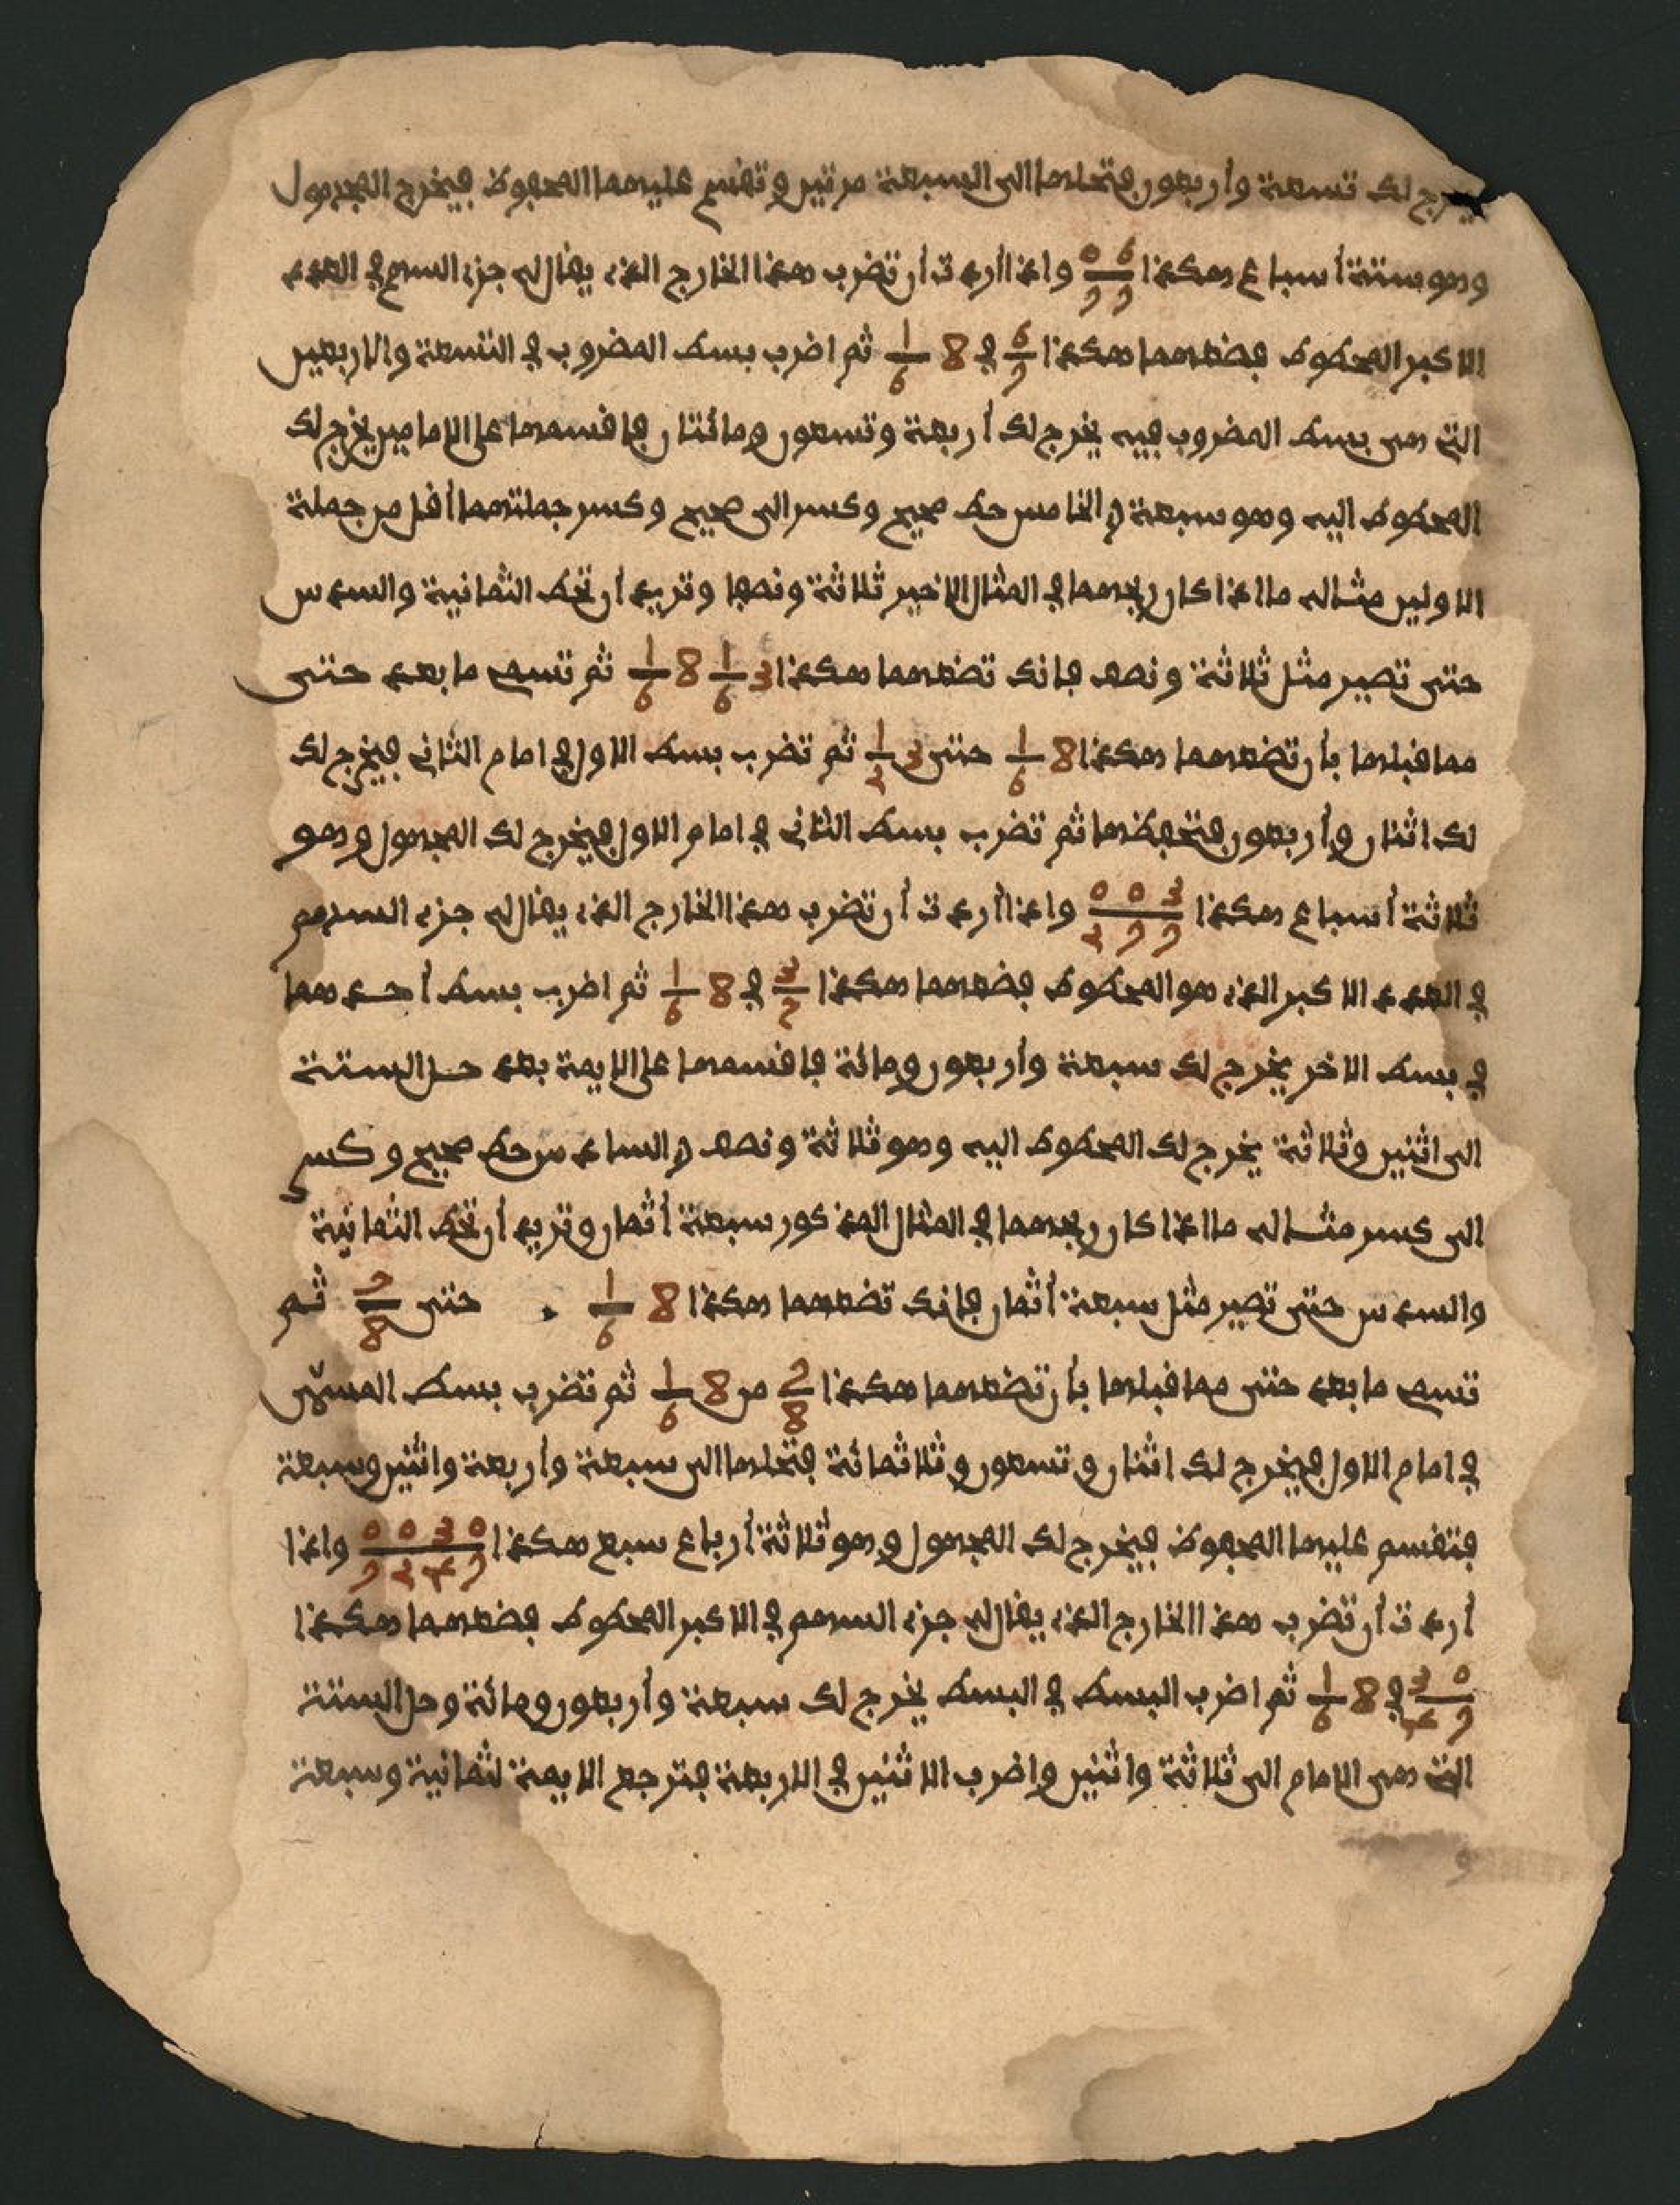 يخرج لك تسعة وأربعون فتحلها الى السبعة مرتين وتقسم عليهما المحفوظ فيخرج المجهول
وهو ستة أسباع هكذا 6 0 / 7 7 واذا أردت أن تضرب هذا الخارج الذي يقال له جزء السهم في العدد
الاكبر المحطوط فضعهما هكذا 6/7 في 8 1/6 ثم اضرب بسط المضروب في التسعة والاربعين
التي هى بسط المضروب فيه يخرج لك أربعة وتسعون ومائتان فاقسمها على الامامين يخرج لك
المحطوط اليه وهو سبعة والخامس حط صحيح وكسر الى صحيح وكسر جملتهما أقل من جملة
الاولين مثاله ما اذا كان ربعهما في المثال الاخير ثلاثة ونصفا وتريد أن تحط الثمانية والسدس
حتى تصير مثل ثلاثة ونصف فانك تضعهما هكذا 3 1/6 8 1/6 ثم تسم ما بعد حتى
مما قبلها بأن تضعهما هكذا 8 1/6 حتى 3 1/2 ثم تضرب بسط الاول في امام الثاني فيخرج لك
لك اثنان وأربعون فتحفظها ثم تضرب بسط الثاني في امام الاول فيخرج لك المجهول وهو
ثلاثة أسباع هكذا 3 0 0 / 7 7 2 واذا أردت أن تضرب هذا الخارج الذي يقال له جزء السهم
في العدد الاكبر الذي هو المحطوط فضعهما هكذا 3/7 في 8 1/6 ثم اضرب بسط أحدهما
في بسط الاخر يخرج لك سبعة وأربعون ومائة فاقسمها على الايمة بعد حل الستة
الى اثنين وثلاثة يخرج لك المحطوط اليه وهو ثلاثة ونصف والسادس حط صحيح وكسر
الى كسر مثاله ما اذا كان ربعهما في المثال المذكور سبعة أثمان وتريد أن تحط الثمانية
والسدس حتى تصير مثل سبعة أثمان فانك تضعهما هكذا 8 1/6 حتى 7/8 ثم
تسم ما بعد حتى مما قبلها بأن تضعهما هكذا 7/8 من 8 1/6 ثم تضرب بسط المسمى
في امام الاول فيخرج لك اثنان وتسعون وثلاثمائة فتحلها الى سبعة وأربعة واثنين وسبعة
فتقسم عليها المحفوظ فيخرج لك المجهول وهو ثلاثة أرباع سبع هكذا 0 3 0 0 / 7 4 2 7 واذا
أردت أن تضرب هذا الخارج الذي يقال له جزء السهم في الاكبر المحطوط فضعهما هكذا
0 3 / 7 4 في 8 1/6 ثم اضرب البسط في البسط يخرج لك سبعة وأربعون ومائة وحل الستة
التي هى الامام الى ثلاثة واثنين واضرب الاثنين في الاربعة فترجع الايمة لثمانية وسبعة